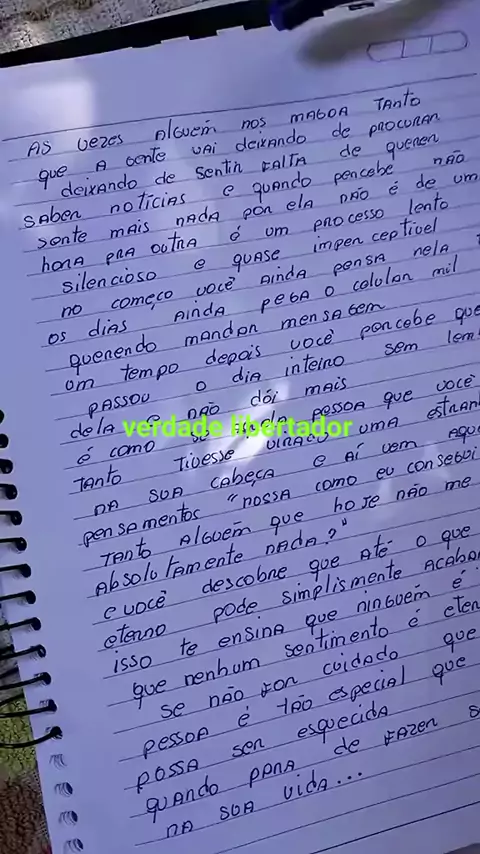 AS VEZES ALGUÉM NOS MAGOA TANTO
QUE A GENTE VAI DEIXANDO DE PROCURAR
DEIXANDO DE SENTIR FALTA DE QUERER
SABER NOTÍCIAS E QUANDO PERCEBE NÃO
SENTE MAIS NADA POR ELA NÃO É DE UM
HORA PRA OUTRA É UM PROCESSO LENTO
SILENCIOSO E QUASE IMPERCEPTÍVEL
NO COMEÇO VOCÊ AINDA PENSA NELA
OS DIAS AINDA PEGA O CELULAR MIL
QUERENDO MANDAR MENSAGEM
UM TEMPO DEPOIS VOCÊ PERCEBE QUE
PASSOU O DIA INTEIRO SEM
DELA E NÃO DÓI MAIS
É COMO PESSOA QUE VOCÊ
verdade libertador
TANTO TIVESSE UMA
NA SUA CABEÇA E AÍ VEM
PENSAMENTOS "NOSSA COMO EU CONSEGUI
TANTO ALGUÉM QUE HOJE NÃO ME
ABSOLUTAMENTE NADA?"
E VOCÊ DESCOBRE QUE ATÉ O QUE
ETERNO PODE SIMPLISMENTE
ISSO TE ENSINA QUE NINGUÉM É
QUE NENHUM SENTIMENTO É
SE NÃO FOR CUIDADO QUE
PESSOA É TÃO ESPECIAL QUE
POSSA SER ESQUECIDA
QUANDO PARA DE FAZER
NA SUA VIDA...